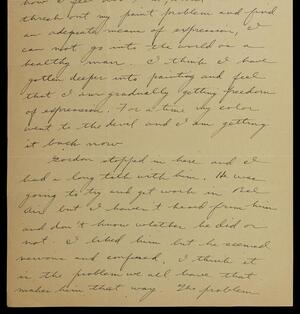 how I feel
thresh out my paint problem and find
an adequate means of expression, I
can not go into the world as a
healthy man. I think I have
gotten deeper into painting and feel
that I am gradually getting freedom
of expression. For a time my color
went to the devil and I am getting
it back now
Gordon stopped in here and I
had a long talk with him. He was
going to try and get work in Bel
Air but I haven't heard from him
and don't know whether he did or
not. I liked him but he seemed
nervous and confused. I think it
is the problem we all have that
makes him that way. The problem